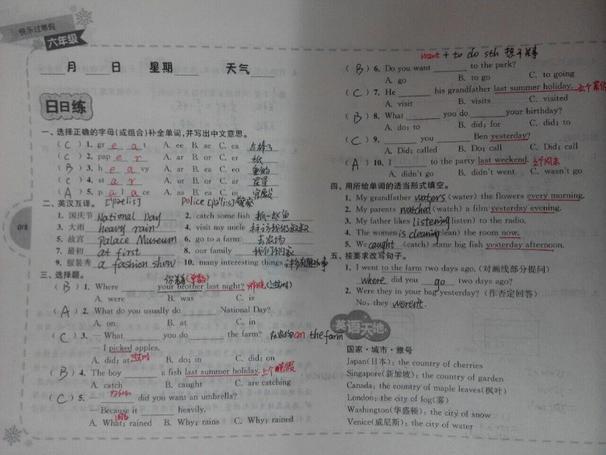 快乐过寒假
六年级
月 日 星期 天气
日日练
一、选择正确的字母(或组合)补全单词,并写出中文意思。
(C) 1. gr e a t A. ee B. ae C. ea
(C) 2. pap e r A. ar B. or C. er 纸
(B) 3. h e a vy A. ae B. ea C. eo 重的
(C) 4. st a r A. ur B. or C. ar
(A) 5. p a l a ce A. a B. ea C. e 宫殿
二、英汉互译。
1. 国庆节 National Day 2. catch some fish 抓一些鱼
3. 大雨 heavy rain 4. visit my uncle
5. 故宫 Palace Museum 6. go to a farm 去农场
7. 最初 at first 8. our family 我们的家
9. 服装秀 a fashion show 10. many interesting things
三、选择题。
(B) 1. Where your brother last night?
A. were B. was C. is
(A) 2. What do you usually do National Day?
A. on B. at C. in
(C) 3. —What you do the farm? on the farm
—I picked apples.
A. did; at B. do; in C. did; on
(B) 4. The boy a fish last summer holiday.
A. catch B. caught C. are catching
(C) 5. — did you want an umbrella?
—Because it heavily.
A. What; rained B. Why; rains C. Why; rained
want + to do sth 想干某事
(B) 6. Do you want to the park?
A. go B. to go C. to going
(C) 7. He his grandfather last summer holiday.
A. visit B. visits C. visited
(B) 8. What you do your birthday?
A. do; to B. did; for C. did; to
(C) 9. you Ben yesterday?
A. Did; called B. Do; call C. Did; call
(A) 10. I to the party last weekend.
A. didn't go B. didn't went C. wasn't go
四、用所给单词的适当形式填空。
1. My grandfather waters (water) the flowers every morning.
2. My parents watched (watch) a film yesterday evening.
3. My father likes listening (listen) to the radio.
4. The woman is cleaning (clean) the room now.
5. We caught (catch) some big fish yesterday afternoon.
五、按要求改写句子。
1. I went to the farm two days ago. (对画线部分提问)
Where did you go two days ago?
2. Were they in your bag yesterday? (作否定回答)
No, they weren't.
英语天地
国家·城市·雅号
Japan(日本): the country of cherries
Singapore(新加坡): the country of garden
Canada: the country of maple leaves(枫叶)
London: the city of fog(雾)
Washington(华盛顿): the city of snow
Venice(威尼斯): the city of water